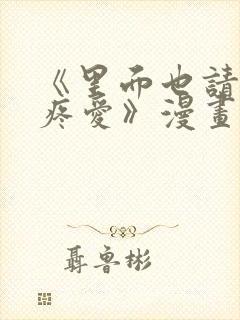 《里面也請
疼愛》漫畫
聶魯彬